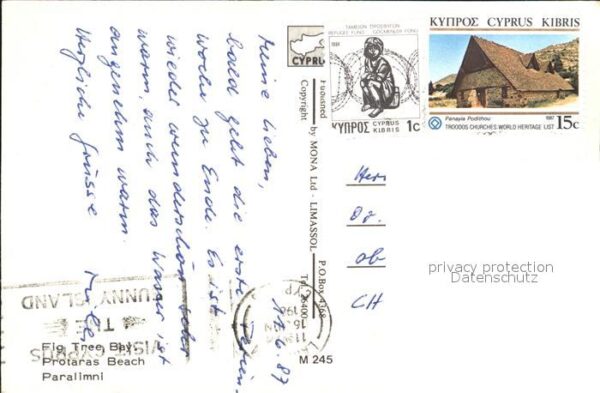 Meine Lieben,
bald geht die erste Ferien-
woche zu Ende. Es ist
wieder wunderschön
warm. auch das Wasser ist
angenehm warm.
Herzliche Grüsse
12.6.87
Fig Tree Bay.
Protaras Beach
Paralimni
VISIT CYPRUS
THE
SUNNY ISLAND
Published by MONA Ltd - LIMASSOL P.O.Box 4368
Copyright
M 245
CYPRUS
TAMEION ΠΡΟΣΦΥΓΩΝ
REFUGEE FUND GÖÇMENLER FONU
1984
ΚΥΠΡΟΣ CYPRUS
KIBRIS 1c
ΚΥΠΡΟΣ CYPRUS KIBRIS
Panayia Podithou 1987
TROODOS CHURCHES WORLD HERITAGE LIST 15c
Herr
Dr.
ob
CH
privacy protection
Datenschutz